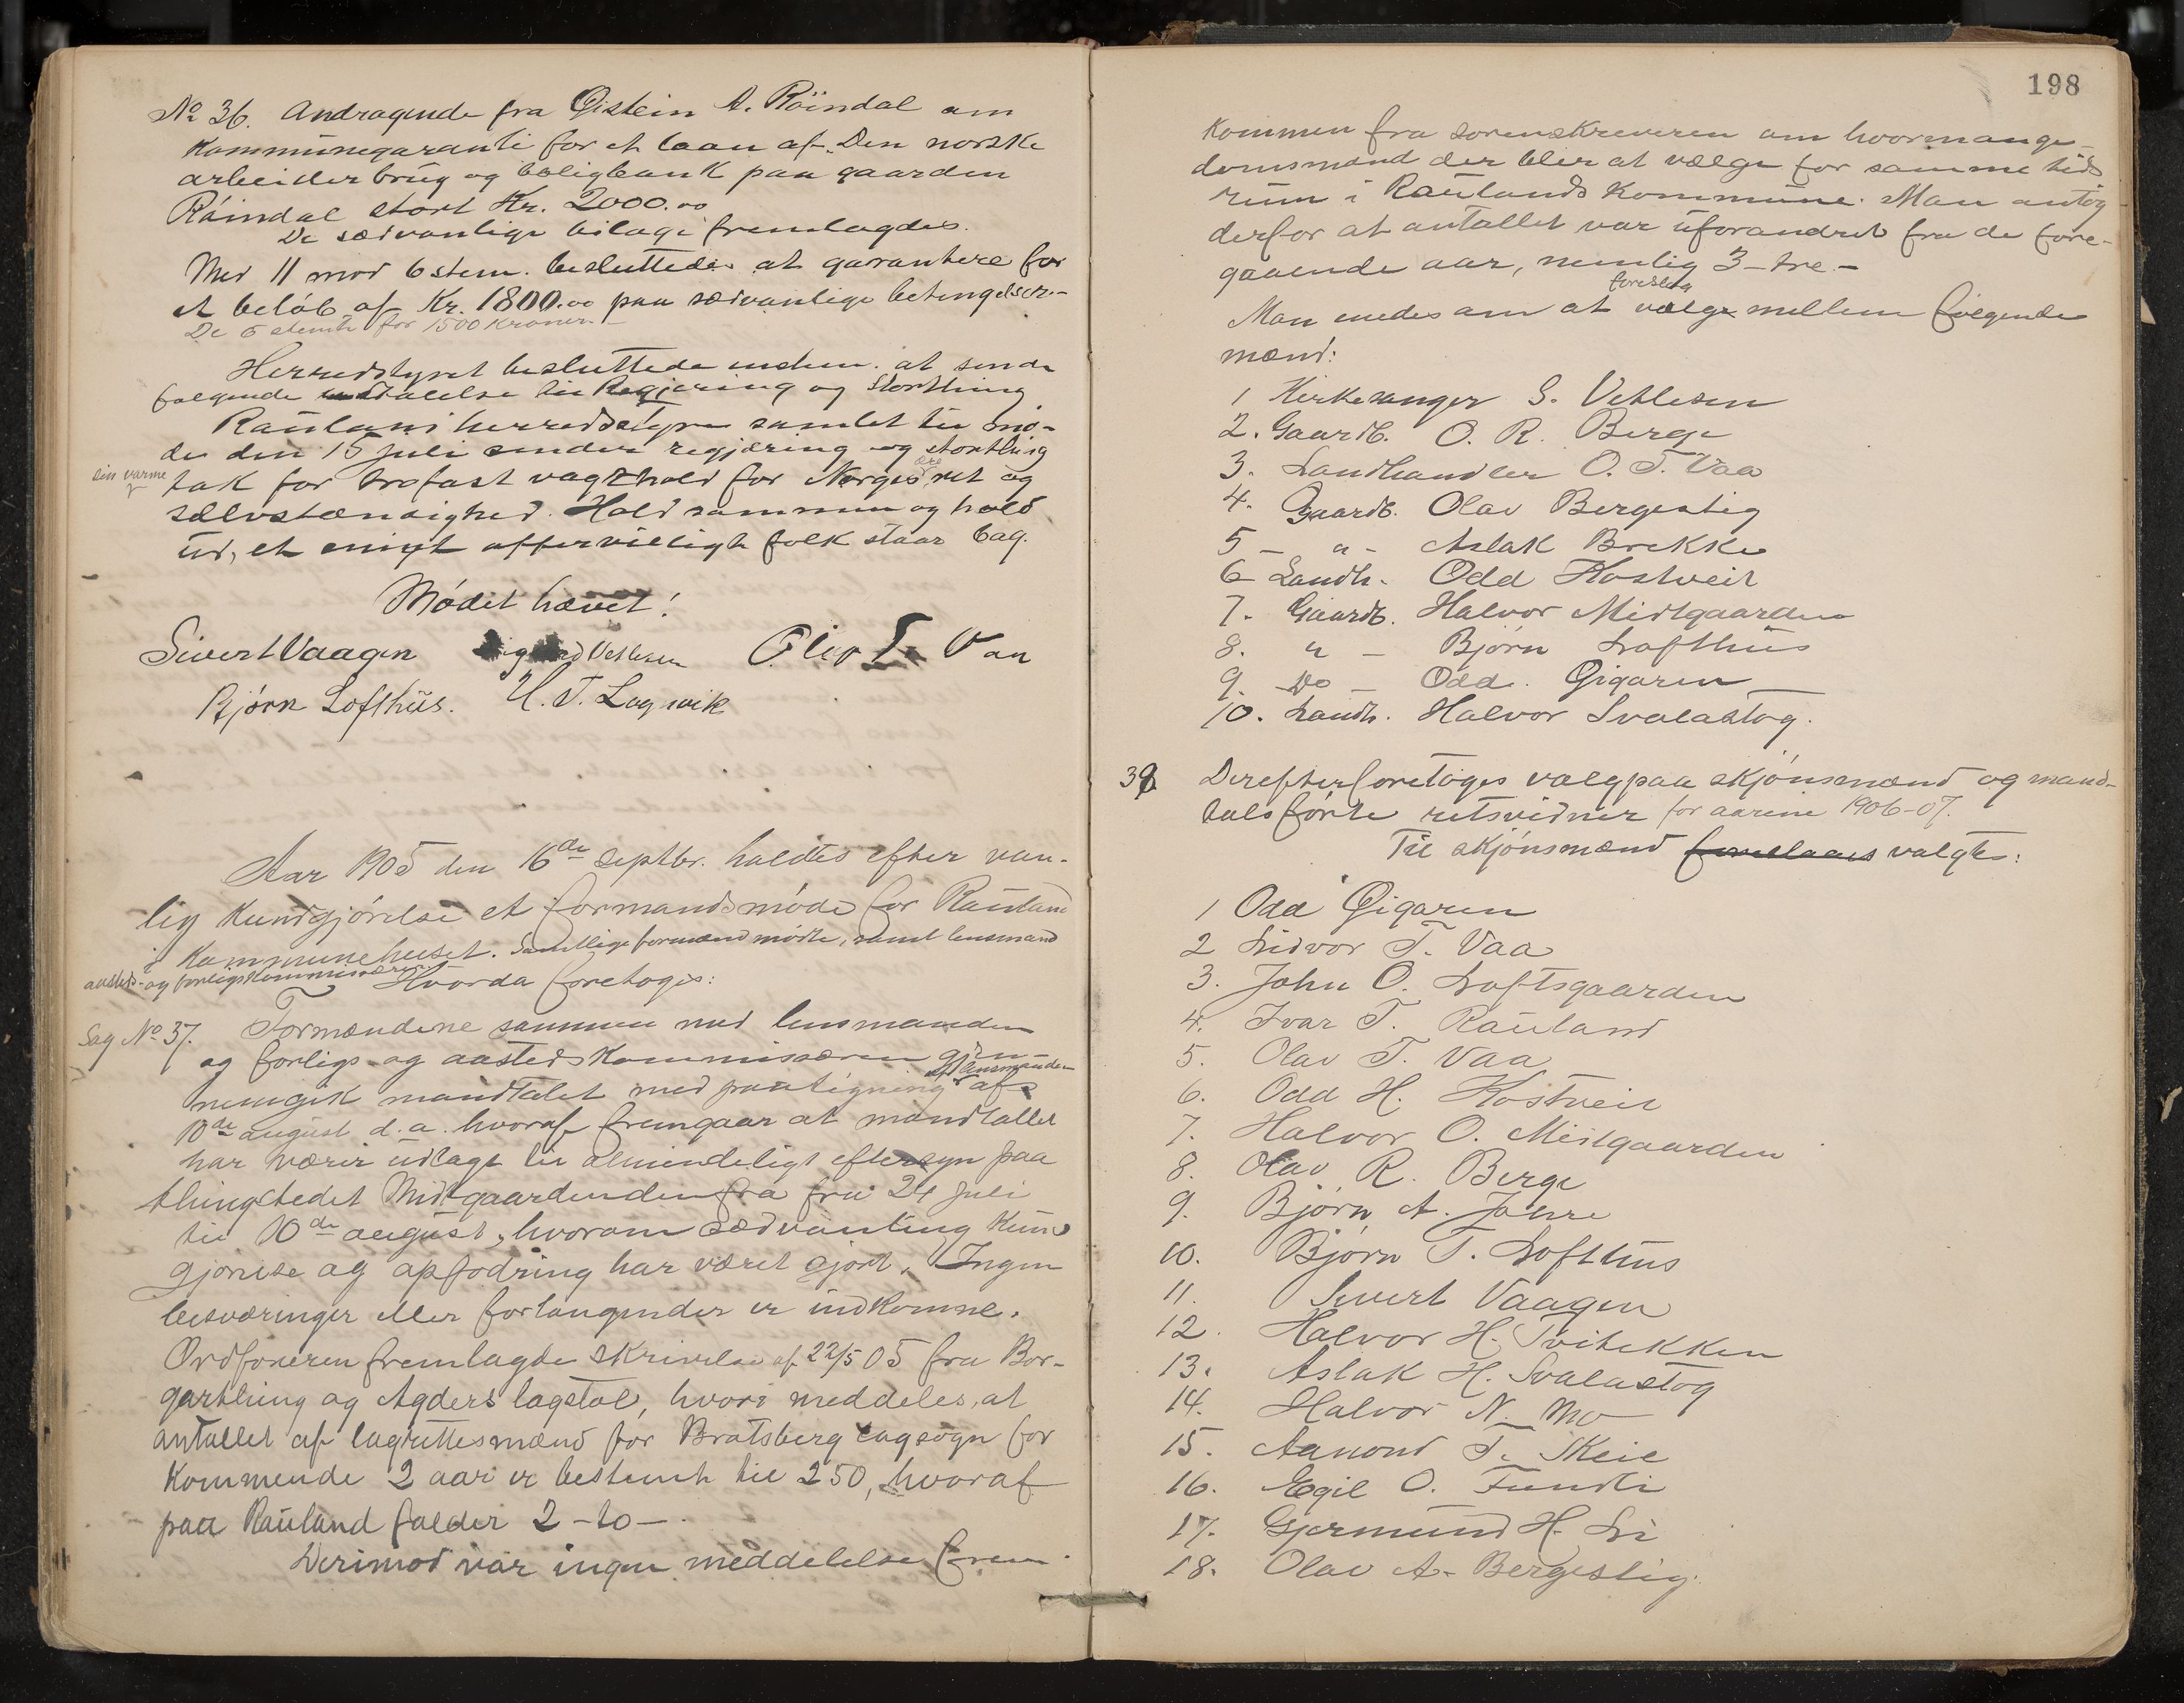 No 36. Andragende fra Øistein A. Röindal om
Kommünegaranti for et laan af Den norske
arbeiderbrüg og boligbank paa gaarden
Röindal stort Kr. 2000.00
De sædvanlige bilage fremlagdes.
Med 11 mod 6 stem. besluttedes at garantere for
et beløb af Kr. 1800.00 paa sædvanlige betingelser.-
De 6 stemte for 1500 Kroner.-
Herredstyret besluttede enstem. at sende
følgende udtalelse til Regjering og Storthing
Raülans herredstyre samlet til mø-
de den 15 juli sender regjæring og storthing
sin varme
tak for trofast vagthold for Norges ære ret og
sælvstændighed. Hold sammen og hold
üd, et enigt offervilligt folk staar bag.
Mødet hævet!
Sivert Vaagen Sigurd Vetlesen Olav T. Vaa
Bjørn Lofthüs. H. T. Lognvik
Aar 1905 den 16de septbr. holdtes efter van-
lig Kundgjørelse et formandsmøde for Raüland
i Kommunehuset. Samtlige formænd mødte, samt lensmand
aasteds- og forligskommissæren Hvorda foretoges:
Sag No 37. Formændene sammen med lensmanden
og forligs- og aastedskommissæren gjen-
nemgik mandtalet med paategning af lensmanden af
10de august d.a. hvoraf fremgaar at mandtallet
har været üdlagt til almindeligt eftersyn paa
thingstedet Midtgaarden fra 24 juli
til 10de august, hvorom sædvanling Kün
gjørelse og opfodring har været gjort. Ingen
besværinger eller forlangender er indkomne.
Ordføreren fremlagde skrivelse af 22/5 05 fra Bor-
garthing og Agders lagstol, hvori meddeles, at
antallet af lagrettesmænd for Bratsberg lagsogn for
Kommende 2 aar er bestemt til 250, hvoraf
paa Raüland falder 2 - to -.
Derimod var ingen meddelelse frem-
198
kommen fra sorenskreveren om hvormange
domsmænd der blir at vælge for samme tids
rüm i Raülands Kommüne. Man antog
derfor at antallet var üforandret fra de fore-
gaaende aar, nemlig 3 - tre -
foreslaa
Man enedes om at vælge mellem følgende
mænd:
1 Kirkesanger S. Vetlesen
2. Gaardb. O. R. Berge
3. Landhandler O. T. Vaa
4. Gaardb. Olav Bergestig
5 - " - Aslak Brekke
6 Landh. Odd Kostveit
7. Gaardb. Halvor Midtgaarden
8. " - Bjørn Lofthüs
9. Do - Odd. Gigaren
10. Landh. Halvor Svalastog.
38 Derefter foretoges valg paa skjønsmænd og mand-
talsførte retsvidner for aarene 1906-07.
Til skjønsmænd foreslaaes valgtes:
1 Odd Gigaren
2 Lidvor T. Vaa
3. John O. Loftsgaarden
4. Ivar T. Raüland
5. Olav T. Vaa
6. Odd H. Kostveit
7. Halvor O. Midtgaarden
8. Olav R. Berge
9. Bjørn A.
10. Bjørn T. Lofthüs
11. Sivert Vaagen
12. Halvor H. Tveitekken
13. Aslak H. Svalastog
14. Halvor N. Mo
15. Aanond T. Skeie
16. Egil O.
17. Gjermünd H. Li
18. Olav A. Bergestig.